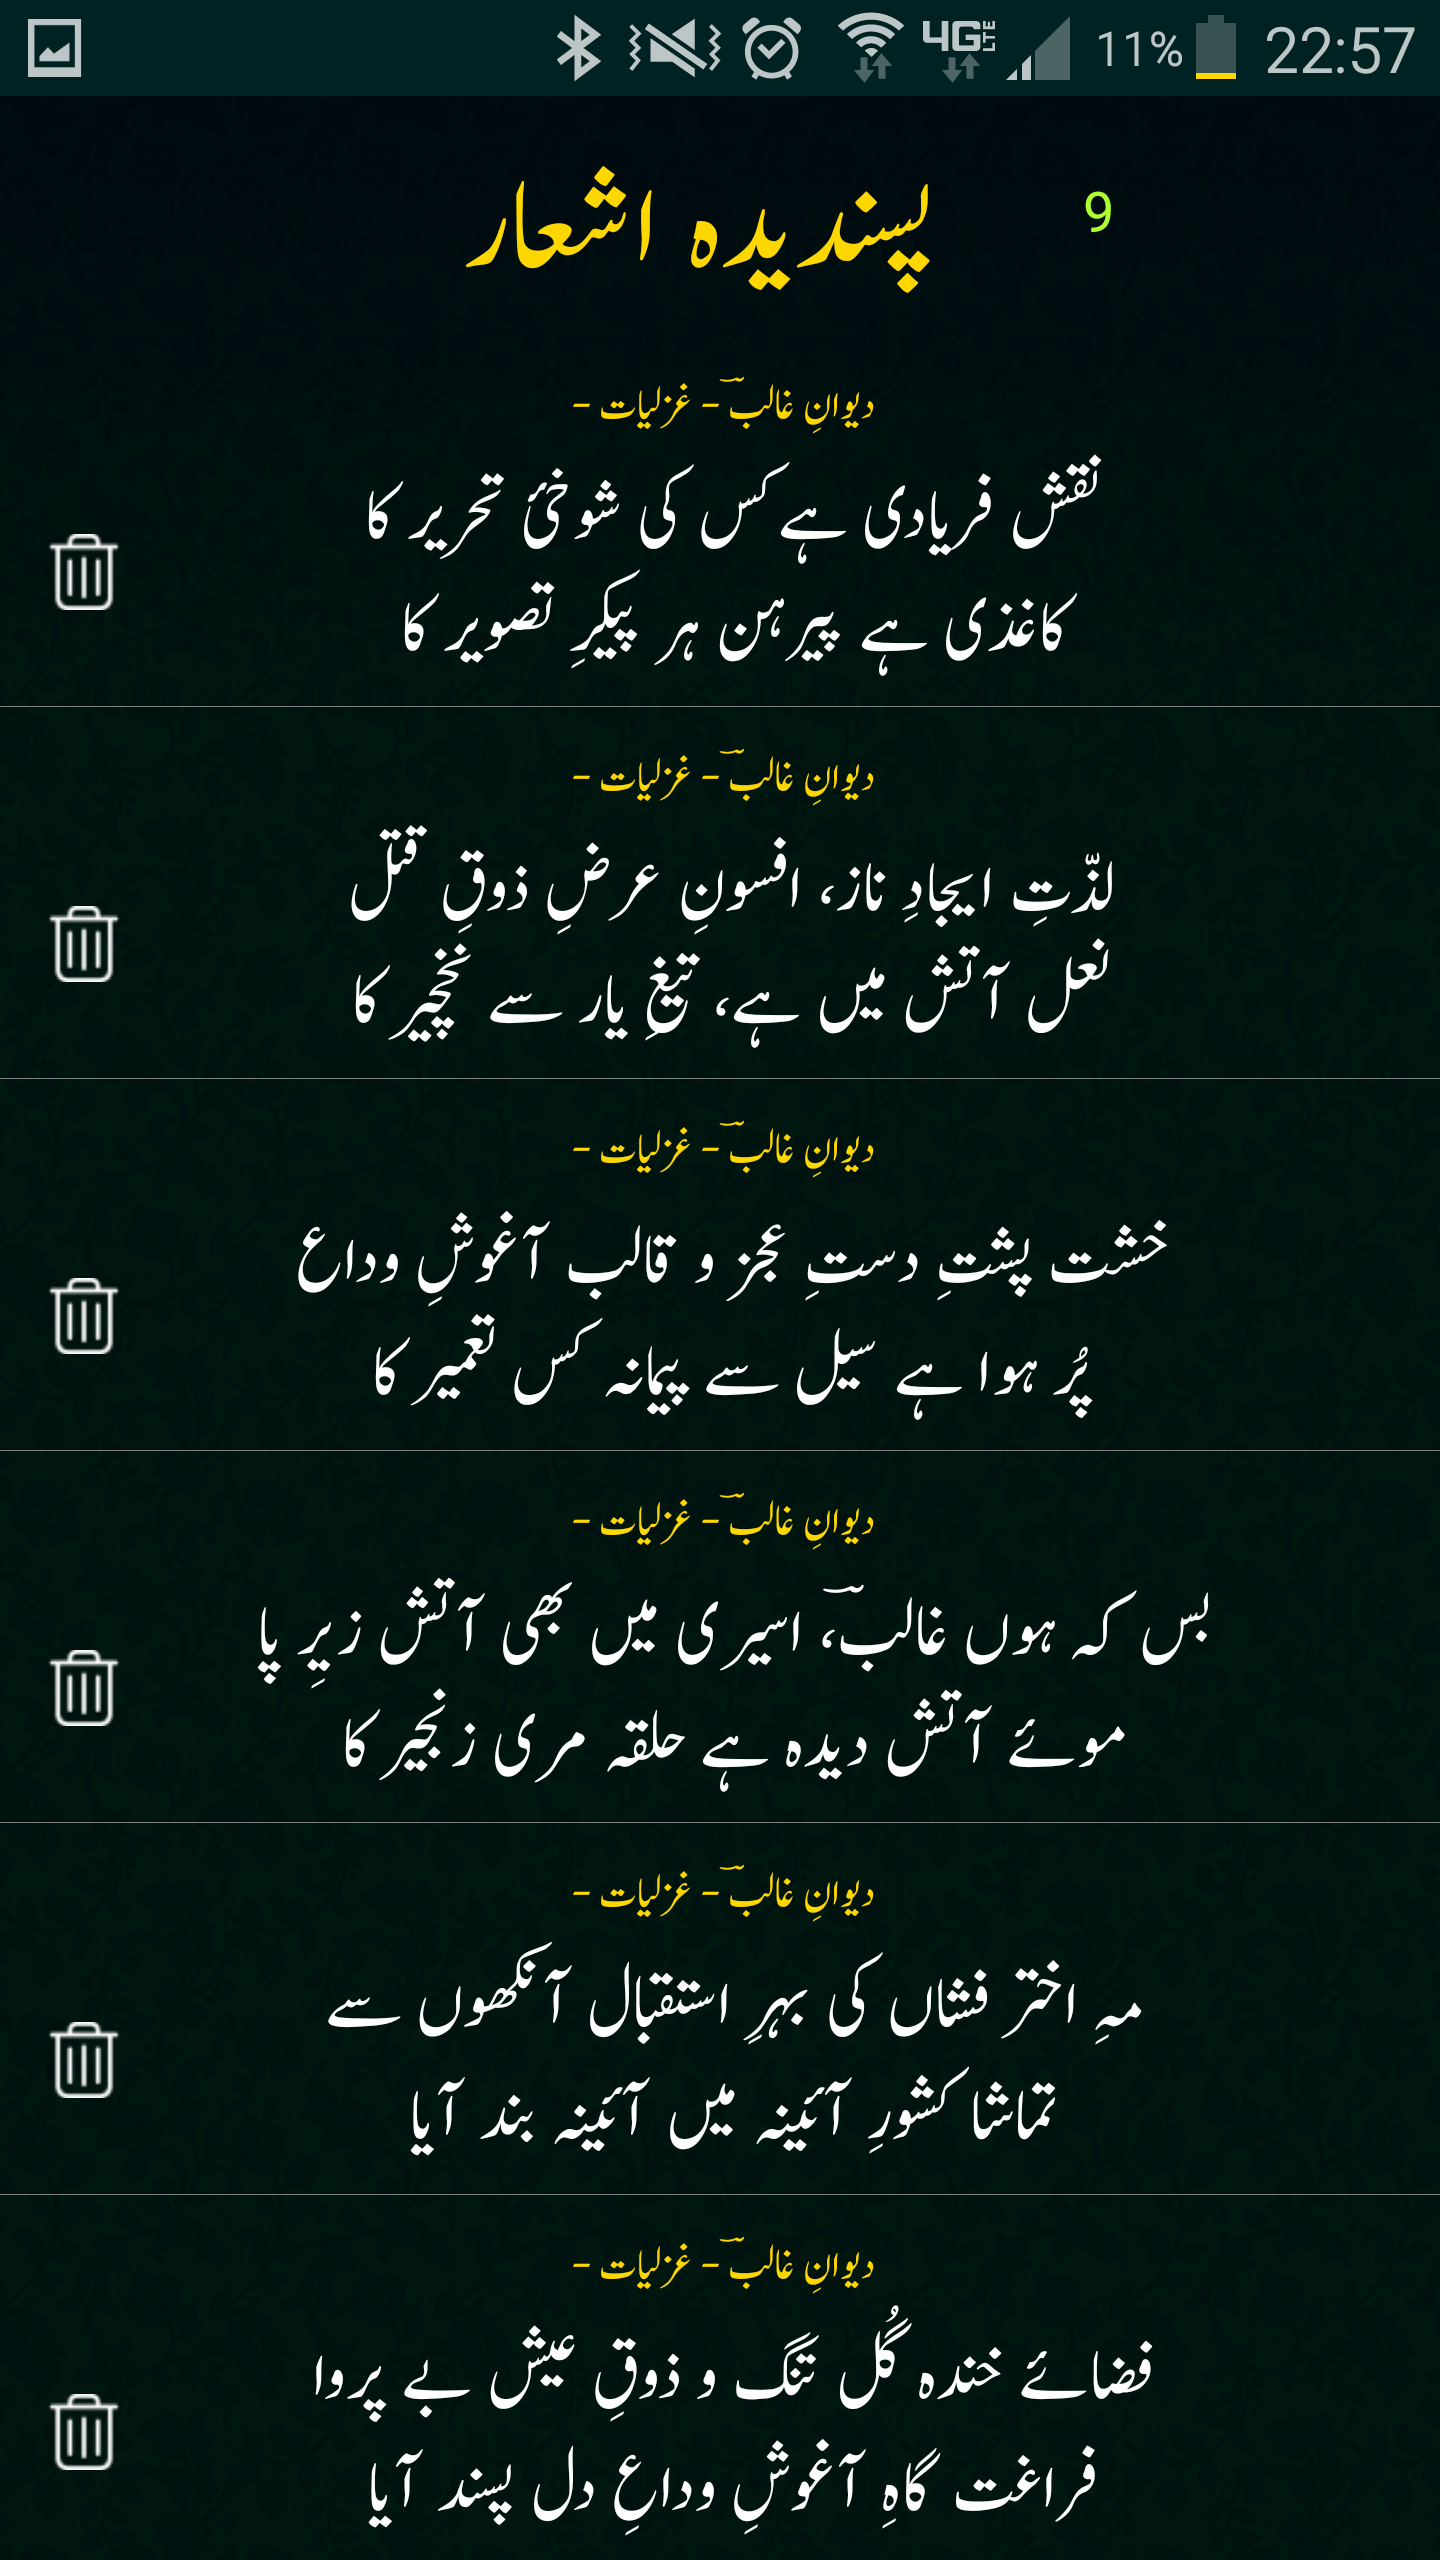 4G LTE 11% 22:57
پسندیدہ اشعار 9
دیوانِ غالبؔ – غزلیات –
نقش فریادی ہے کس کی شوخئ تحریر کا
کاغذی ہے پیرہن ہر پیکرِ تصویر کا
دیوانِ غالبؔ – غزلیات –
لذّتِ ایجادِ ناز، افسونِ عرضِ ذوقِ قتل
نعل آتش میں ہے، تیغِ یار سے نخچیر کا
دیوانِ غالبؔ – غزلیات –
خشت پشتِ دستِ عجز و قالب آغوشِ وداع
پُر ہوا ہے سیل سے پیمانہ کس تعمیر کا
دیوانِ غالبؔ – غزلیات –
بس کہ ہوں غالبؔ، اسیری میں بھی آتش زیرِ پا
موئے آتش دیدہ ہے حلقہ مری زنجیر کا
دیوانِ غالبؔ – غزلیات –
مہِ اختر فشاں کی بہرِ استقبال آنکھوں سے
تماشا کشورِ آئینہ میں آئینہ بند آیا
دیوانِ غالبؔ – غزلیات –
فضائے خندہ گُل تنگ و ذوقِ عیش بے پروا
فراغت گاہِ آغوشِ وداعِ دل پسند آیا